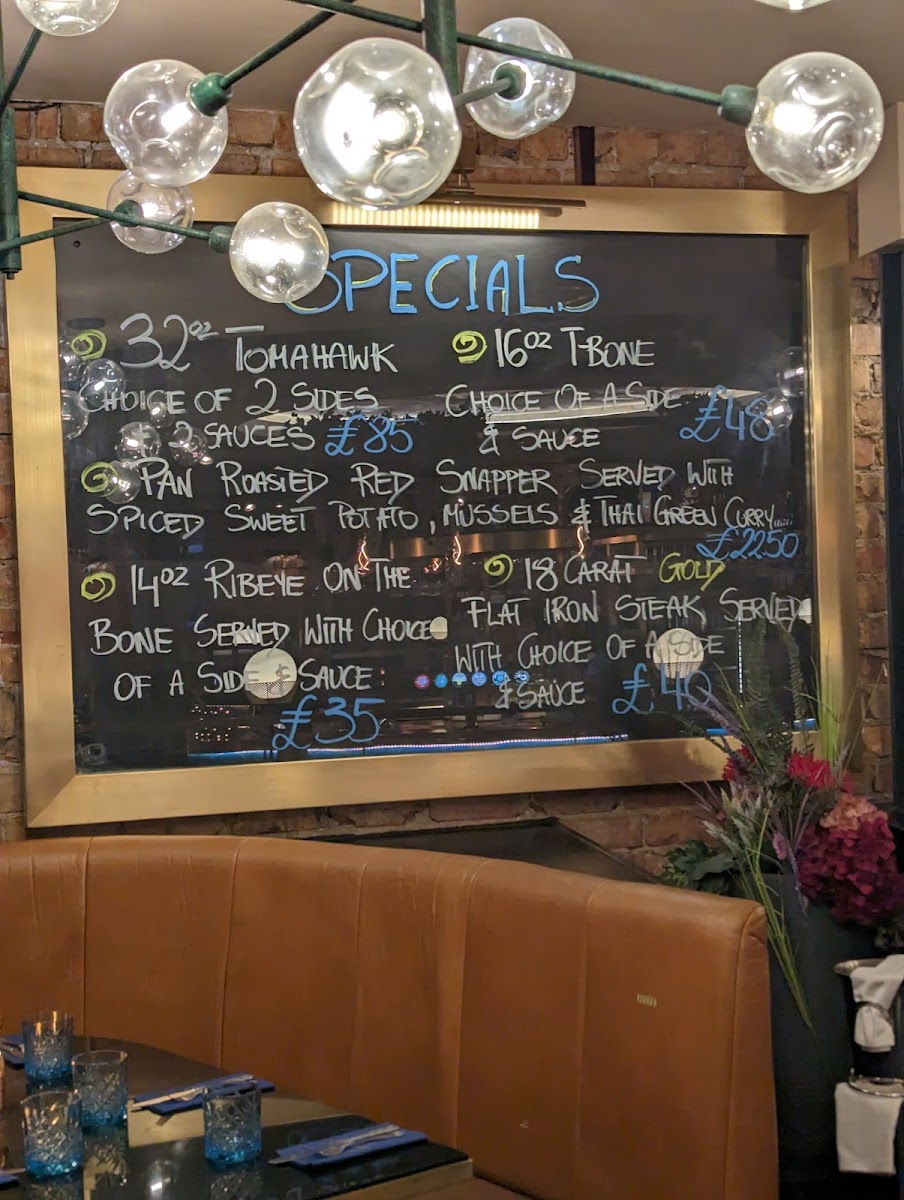 SPECIALS
32oz TOMAHAWK
CHOICE OF 2 SIDES
+ 2 SAUCES £85
16oz T-BONE
CHOICE OF A SIDE
& SAUCE £48
PAN ROASTED RED SNAPPER SERVED WITH
SPICED SWEET POTATO, MUSSELS & THAI GREEN CURRY....
£22.50
14oz RIBEYE ON THE
BONE SERVED WITH CHOICE
OF A SIDE & SAUCE
£35
18 CARAT GOLD
FLAT IRON STEAK, SERVED
WITH CHOICE OF A SIDE
& SAUCE £40